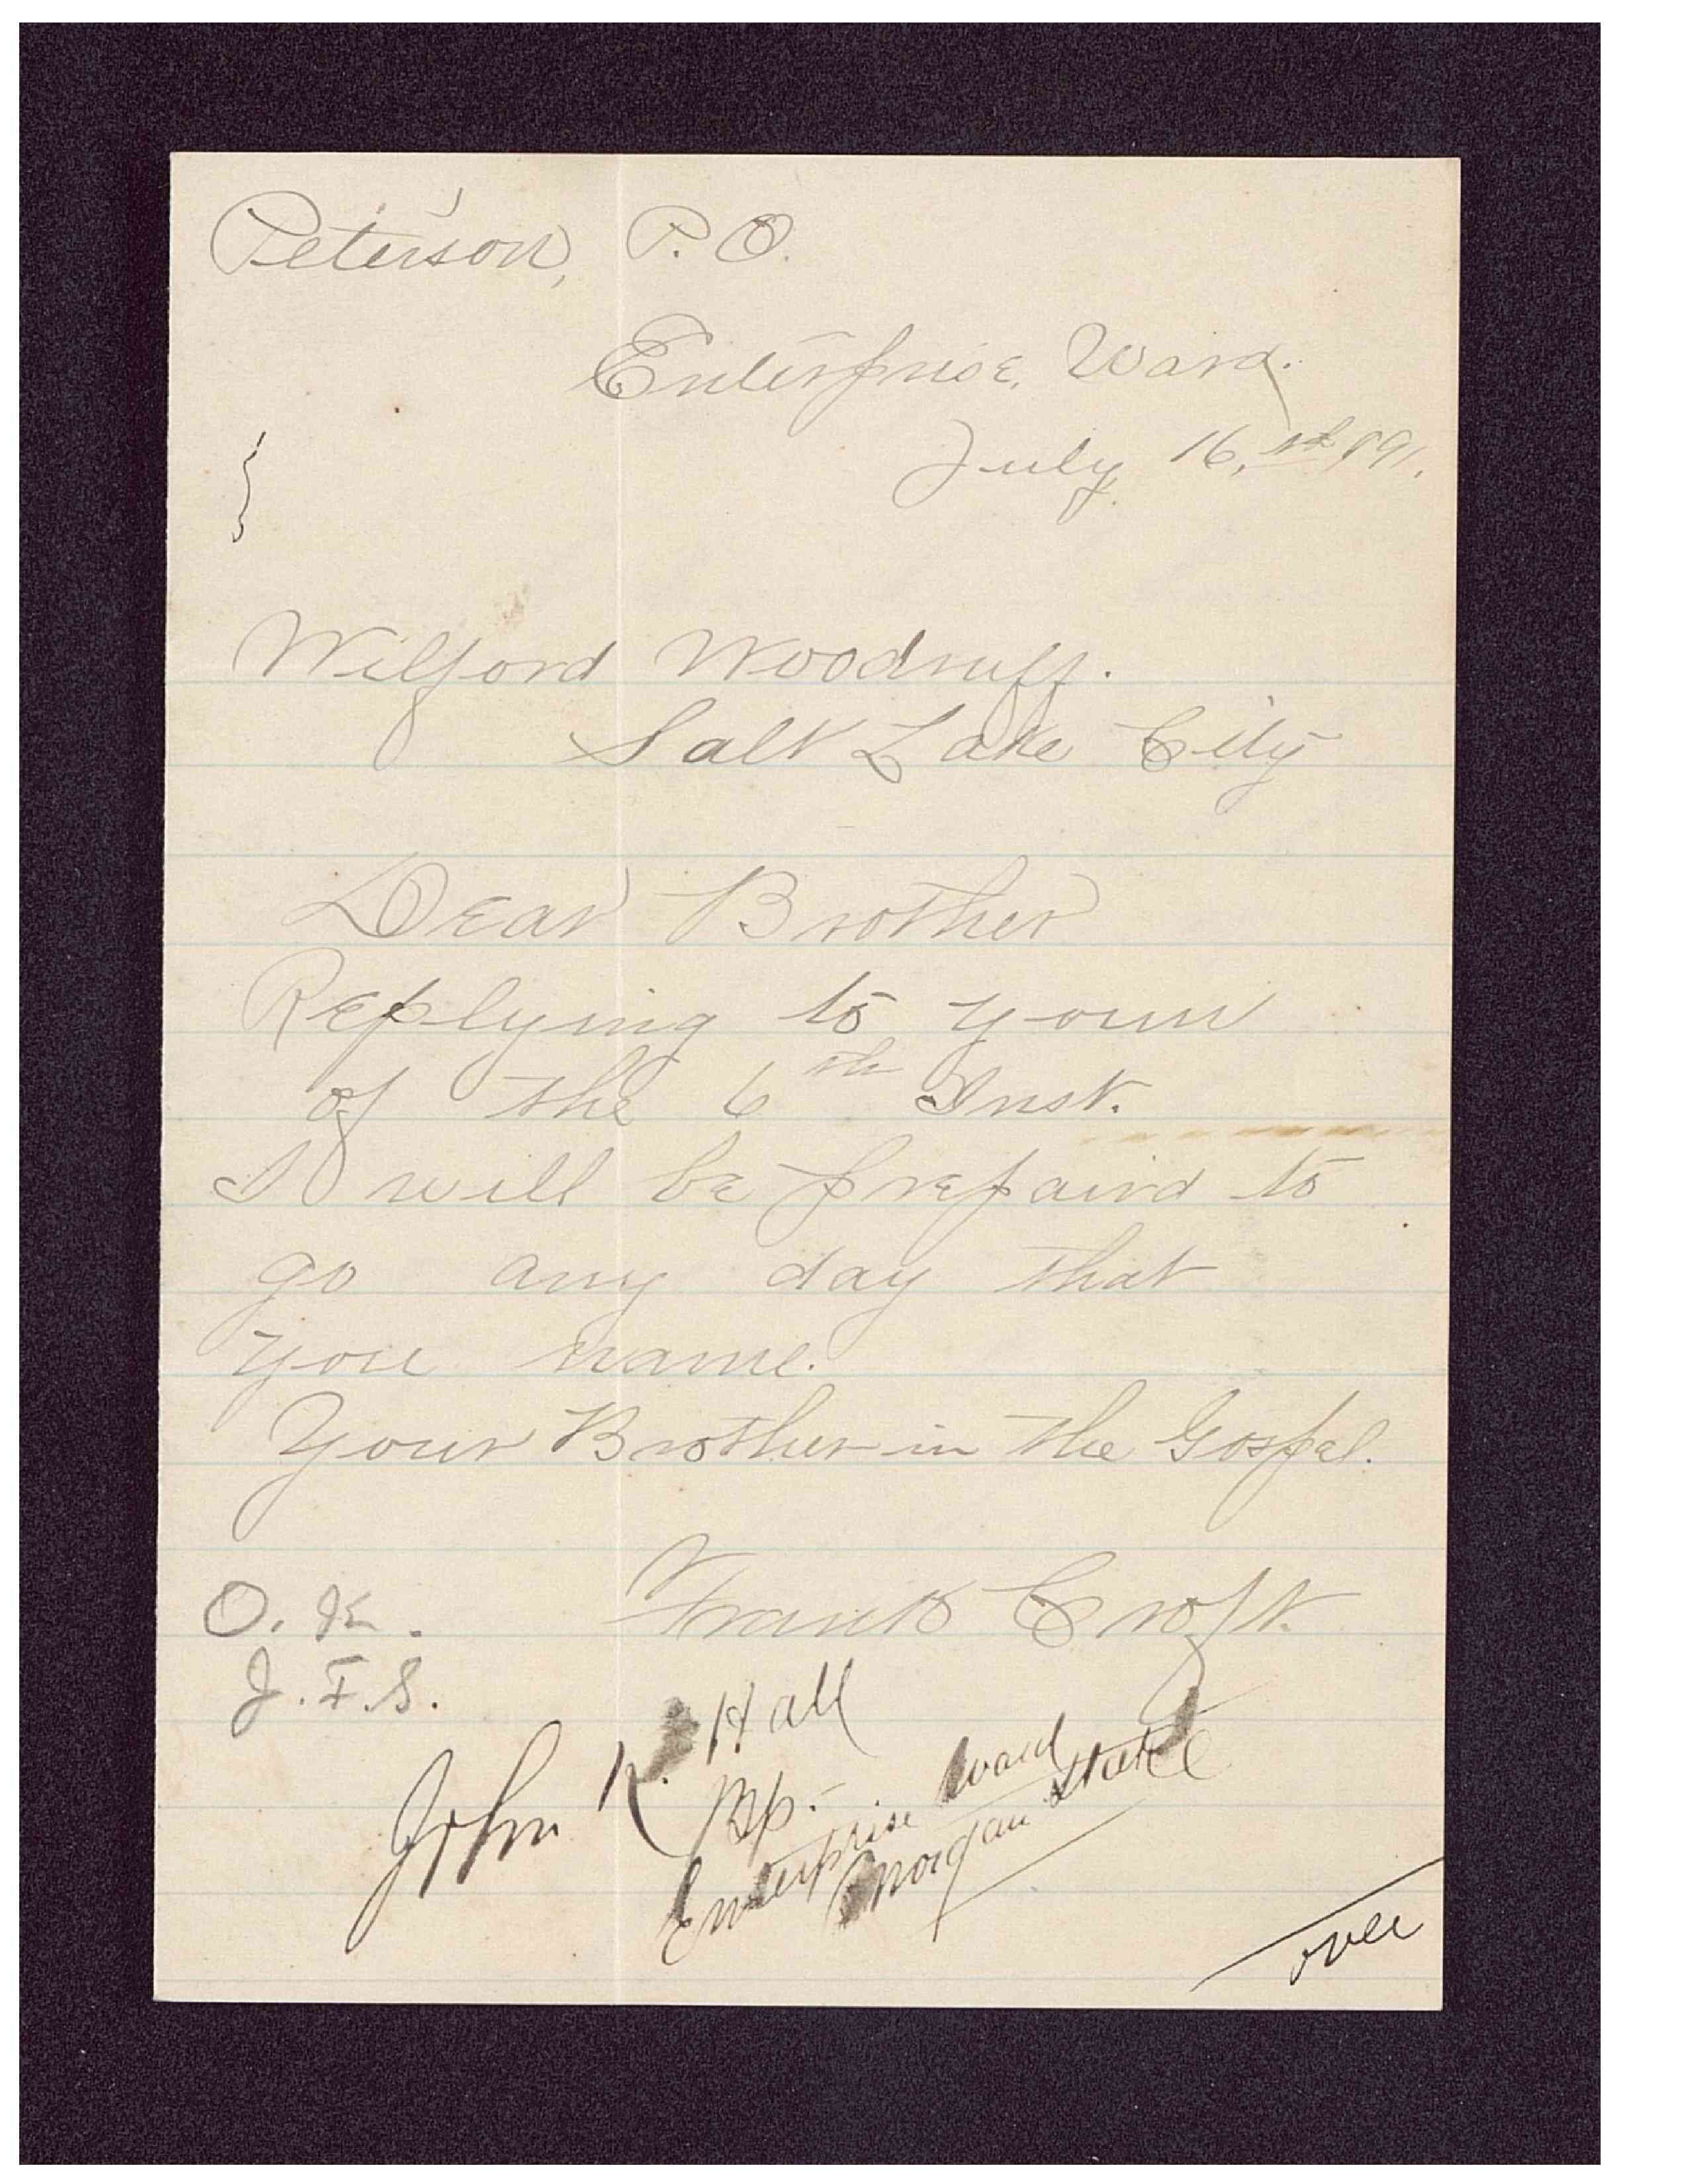 Peterson, P.O.
Enterprise, Ward.
July 16, 1891.
Wilford Woodruff.
Salt Lake City
Dear Brother
Replying to your
of the 6th Inst.
I will be prepaird to
go any day that
you name.
Your Brother in the Gospel.
Frank Croft.
O. K.
J. F. S.
John K. Hall
Bp.
Enterprise Ward
Morgan Stake
over